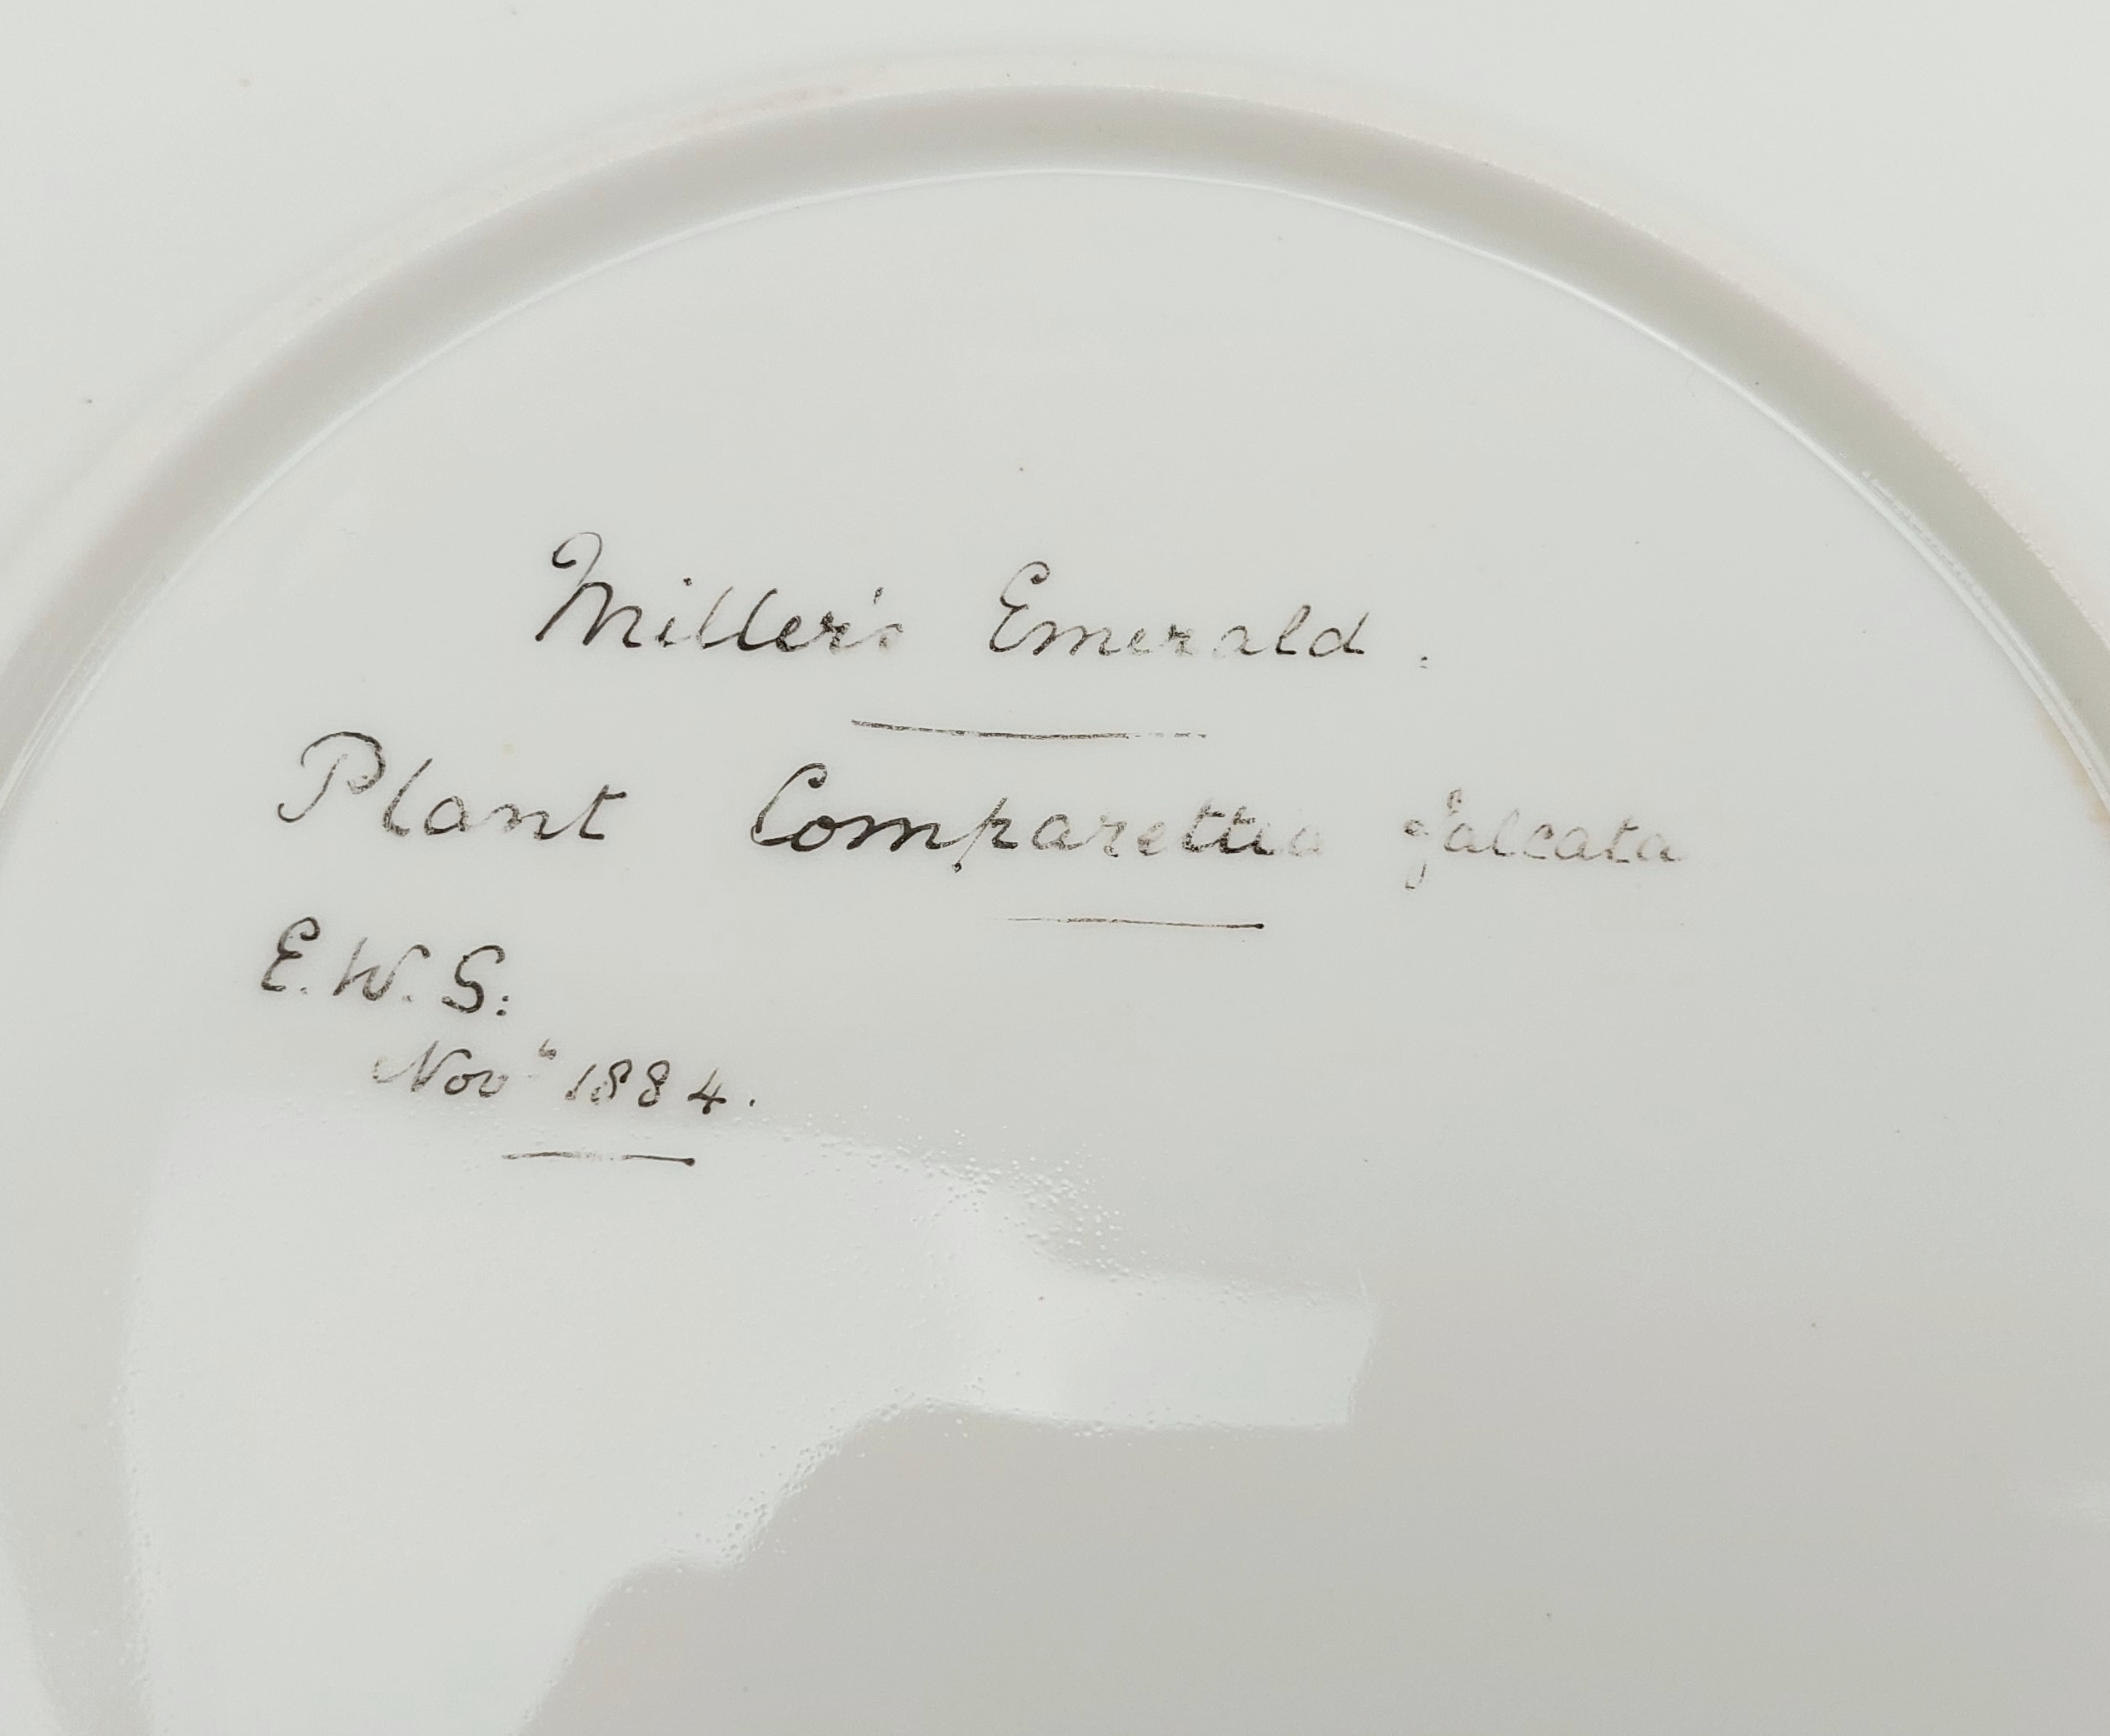 Miller's Emerald.
Plant Comparettia falcata
E. W. S.
Novr 1884.